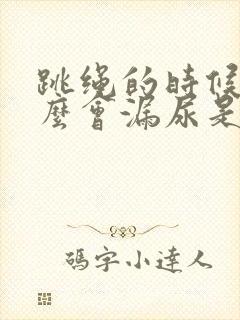 跳绳的時候
麼會漏尿是
碼字小達人